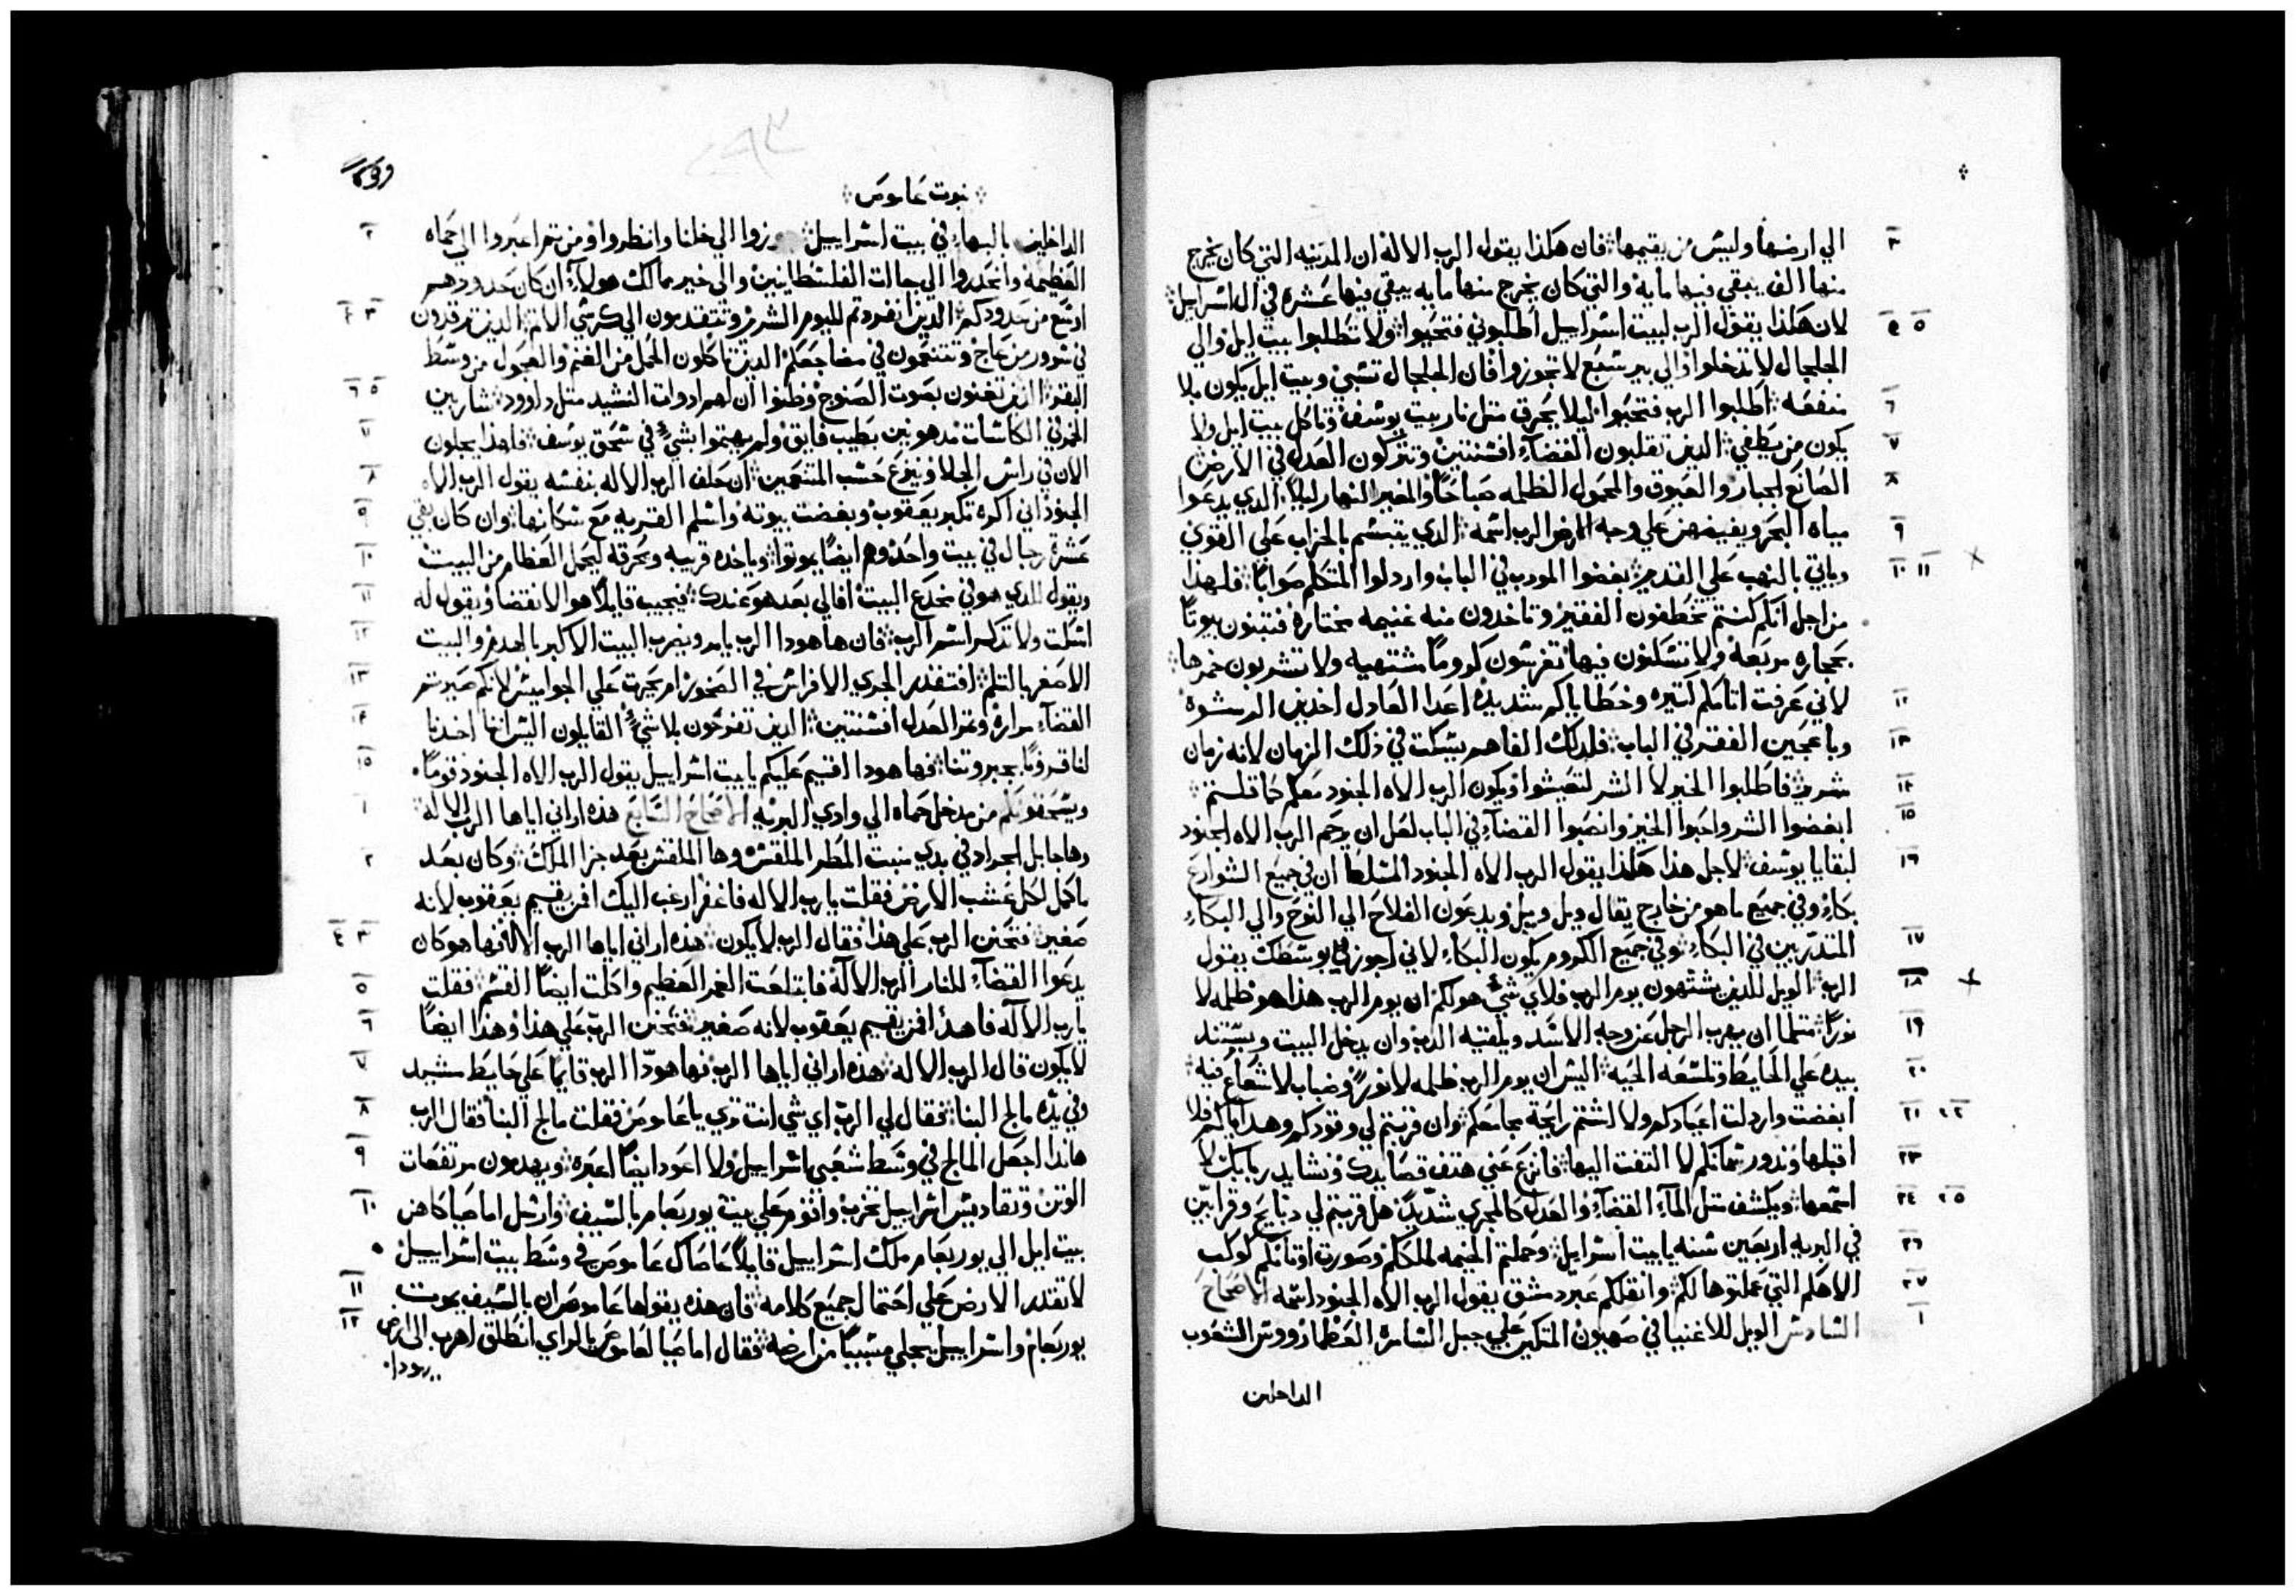 الي ارضها وليس من يقيمها فان هكذا يقول الرب الاله ان المدينه التي كان يخرج
٣
منها الف يبقي فيها مايه والتي كان يخرج منها مايه يبقي فيها عشره في ال اسراييل
لان هكذا يقول الرب لبيت اسراييل اطلبوني فتحيوا ولا تطلبوا بيت ايل والي
الجلجال لا تدخلوا والي بير سبع لا تجوزوا فان الجلجال تسبي وبيت ايل يكون بلا
منفعه اطلبوا الرب فتحيوا ليلا يحرق مثل نار بيت يوسف وتاكل بيت ايل ولا
٦
يكون من يطفي الذين تقلبون القضآء افسنتين وتتركون العدل في الارض
٧
الصانع الجبار والعيوق والمحول الظلمه صباحاً والمغير النهار ليلاً الدي يدعوا
٨
مياه البحر ويفيضهن علي وجه الارض الرب اسمه الدي يتبسم بالخراب علي القوي
٩
وياتي بالنهب علي القدير بغضوا المودب في الباب واردلوا المتكلم صواباً فلهذا
١٠ ١١
من اجل انكم كنتم تخطفون الفقير وتاخدون منه غنيمه مختاره فتبنون بيوتاً
بحجاره مربعه ولا تسكنون فيها تغرسون كروماً مشتهيه ولا تشربون خمرها
لاني عرفت اتامكم كتيره وخطاياكم شديده اعدا العادل اخدين الرشوة
١٢
وباعجين الفقر في الباب فلدلك الفاهم يسكت في ذلك الزمان لانه زمان
١٣
شرير فاطلبوا الخير لا الشر لتعيشوا ويكون الرب الاه الجنود معكم كما قلتم
١٤
ابغضوا الشر واحبوا الخير وانصبوا القضآء في الباب لعل ان يرحم الرب الاه الجنود
١٥
لبقايا يوسف لاجل هذا هكذا يقول الرب الاه الجنود المسلط ان في جميع الشوارع
١٦
بكاء وفي جميع ما هو من خارج يقال ويل ويل ويدعون الفلاح الي النوح والي البكاء
المتدربين في البكاء وفي جميع الكروم يكون البكاء لاني اجوز في وسطك يقول
١٧
الرب الويل للدين يشتهون يوم الرب فلاي شي هو لكم ان يوم الرب هذا هو ظلمه لا
١٨
نوراً متلما ان يهرب الرجل عن وجه الاسد ويلقيه الدب وان يدخل البيت ويستند
١٩
بيده علي الحايط وتلسعه الحيه اليس ان يوم الرب ظلمه لا نور وضباب لا شعاع فيه
٢٠
ابغضت واردلت اعيادكم ولا اشتم رايحة مجامعكم وان قربتم لي وقودكم وهداياكم فلا
٢١ ٢٢
اقبلها وندور سمانكم لا التفت اليها فانزع عني هتف قصايدك ونشايد ربابك لا
٢٣
اسمعها ويكشف متل المآء القضآء والعدل كالمجري شديد هل قربتم لي دبايح وقرابين
٢٤ ٢٥
في البريه اربعين سنه يا بيت اسراييل وحملتم الخيمه لملككم وصورت اوتانكم كوكب
٢٦
الاهكم التي عملتوها لكم وانقلكم عبر دمشق يقول الرب الاه الجنود اسمه الاصحاح
٢٧
السادس الويل للاغنيا في صهيون المتكين علي جبل السامرة العظما رووس الشعوب
١
الداخلين
نبوت عاموص
الداخلين بالبهاء في بيت اسراييل جوزوا الي خلنا وانظروا ومن تم اعبروا الي حماه
٢
العظيمه وانحدروا الي جاات الفلسطانيين والي خير ممالك هولاء ان كان حدودهم
اوسع من حدودكم الذين افردتم لليوم الشرير وتتقدمون الي كرسي الاتم الدين ترقدون
٣ ٤
في سرور من عاج وتتنعمون في مضاجعكم الدين تاكلون الحمل من الغنم والعجول من وسط
البقر الدين تغنون بصوت الصنوج وظنوا ان لهم ادوات النشيد متل داوود شاربين
٥ ٦
الخمر في الكاسات مدهونين بطيب فايق ولم يهتموا بشي في سحق يوسف فلهذا يجلون
الان في راس الجلا وينزع حسب المتنعمين ان حلف الرب الاله بنفسه يقول الرب الاه
٨
الجنود اني اكره تكبر يعقوب وبغضت بيوته واسلم القريه مع سكانها وان كان بقي
٩
عشرة رجال في بيت واحد وهم ايضاً يموتوا وياخده قريبه ويحرقه ليحمل العظام من البيت
١٠
ويقول للدي هو في مخدع البيت افالي بعد هو عندك فيجيب قايلاً هو الانقضا ويقول له
١١
اسكت ولا تدكر اسم الرب فان ها هودا الرب يامر ويضرب البيت الاكبر بالهدم والبيت
١٢
الاصغر بالتلم افتقدر الجري الافراس في الصخور ام يحرث علي الجواميس لانكم صيرتم
١٣
القضآء مراره وتمر العدل افسنتين الدين تفرحون بلا شي القايلون اليس اننا اخدنا
١٤
لنا قروناً بجبروتنا فها هودا اقيم عليكم يا بيت اسراييل يقول الرب الاه الجنود قوماً
١٥
ويسحقونكم من مدخل حماه الي وادي البريه الاصحاح السابع هذه اراني اياها الرب الاله
١
وها جابل الجراد في بدي منبت المطر الملقس وها الملقس بعد جز الملك وكان بعد
٢
ما كمل لكل عشب الارض فقلت يا رب الاله فاغفر ارغب اليك افمن يقيم يعقوب لانه
صغير فتحنن الرب علي هذا فقال الرب لا يكون هذه اراني اياها الرب الاله فها هو كان
٣ ٤
يدعوا القضآء للنار الرب الاله فابتلعت الغمر العظيم واكلت ايضاً القسم فقلت
٥
يا رب الاله فاهدأ افمن يقيم يعقوب لانه صغير فتحنن الرب علي هذا وهذا ايضاً
٦
لا يكون قال الرب الاله هذه اراني اياها الرب فها هودا الرب قايماً علي حايط مشيد
٧
وفي يده مالج البنا فقال لي الرب اي شي انت تري يا عاموص فقلت مالج البنا فقال الرب
٨
هاندا اجعل المالج في وسط شعبي اسراييل ولا اعود ايضاً اعبره ويهدمون مرتفعات
٩
الوتن وتقاديس اسراييل تخرب واقوم علي بيت يوربعام بالسيف وارسل اماصيا كاهن
١٠
بيت ايل الي يوربعام ملك اسراييل قايلاً عاصاك عاموص في وسط بيت اسراييل
لا تقدر الارض علي احتمال جميع كلامه فان هذه يقولها عاموص ان بالسيف يموت
١١
يوربعام واسراييل يجلي مسبياً من ارضه فقال اماصيا لعاموص يا الراي انطلق اهرب الي ارض
١٢
يهودا